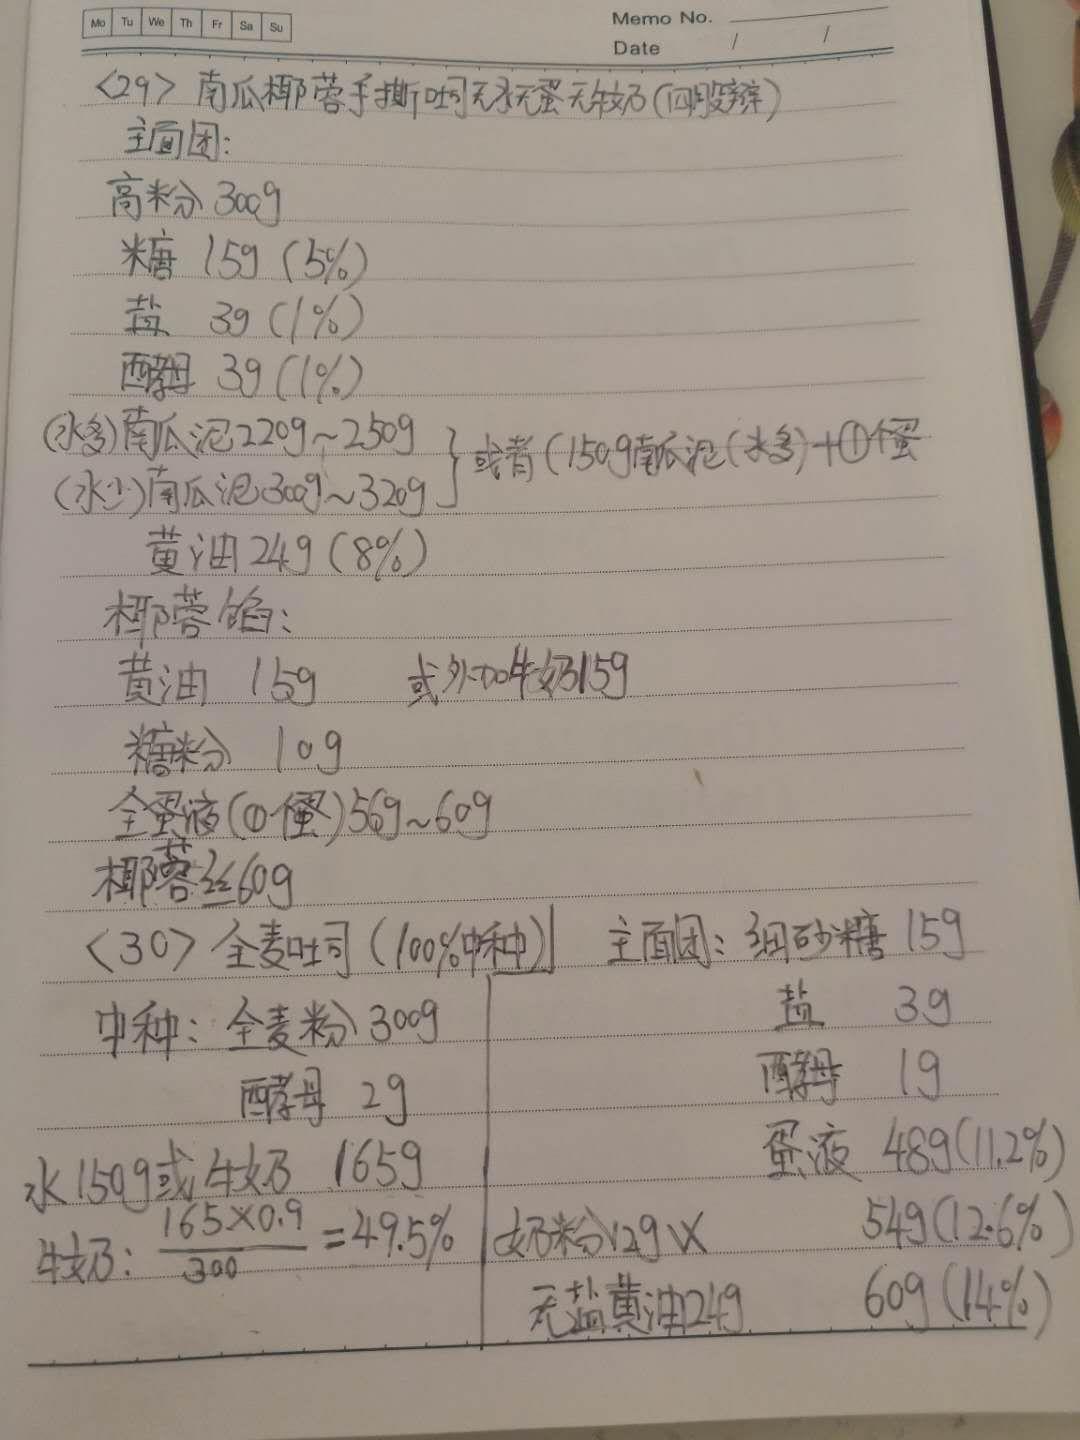 Mo Tu We Th Fr Sa Su
Memo No.
Date / /
<29> 南瓜椰蓉手撕吐司无水无蛋无牛奶(四股辫)
主面团:
高粉 300g
糖 15g (5%)
盐 3g (1%)
酵母 3g (1%)
(水多)南瓜泥220g~250g
(水少)南瓜泥300g~320g } 或者(150g南瓜泥(水多)+①个蛋
黄油 24g (8%)
椰蓉馅:
黄油 15g 或外加牛奶15g
糖粉 10g
全蛋液(①个蛋)56g~60g
椰蓉丝60g
<30> 全麦吐司 (100%中种)
中种: 全麦粉 300g
酵母 2g
水150g或牛奶 165g
牛奶: 165×0.9/300 =49.5%
主面团: 细砂糖 15g
盐 3g
酵母 1g
蛋液 48g(11.2%)
奶粉12g X 54g(12.6%)
无盐黄油24g 60g(14%)